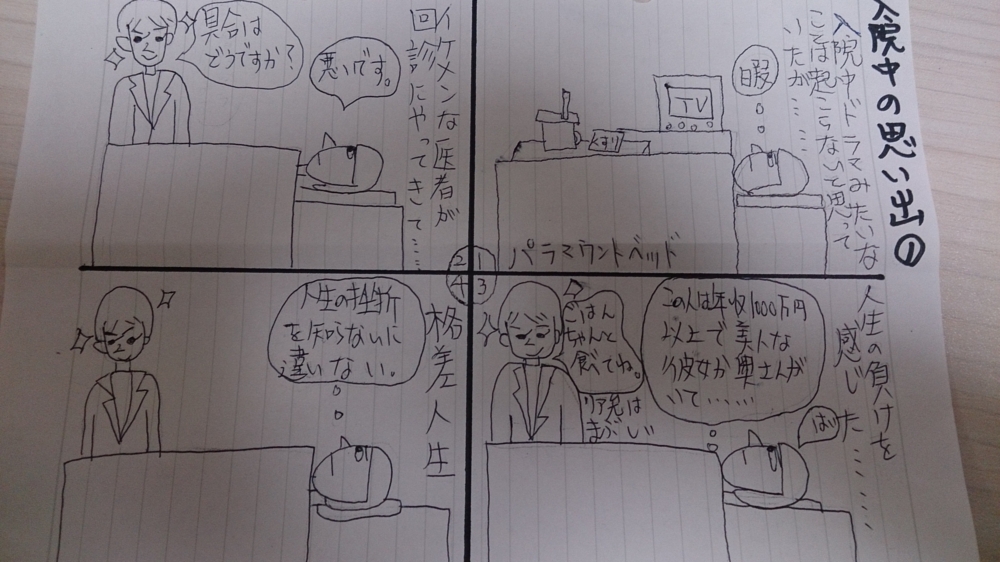 入院中の思い出①
入院中ドラマみたいな
ことは起こらないと思って
いたが……
暇
TV
くすり
パラマウントベッド
1
2
イケメンな医者が
回診にやってきて……
具合は
どうですか?
悪いです。
3
人生の負けを
感じた……
この人は年収1000万円
以上で美人な
彼女か奥さんが
いて……
はい
ごはん
ちゃんと
食べてね。
リア充は
まぶしい
4
格差人生
人生の挫折
を知らないに
違いない。